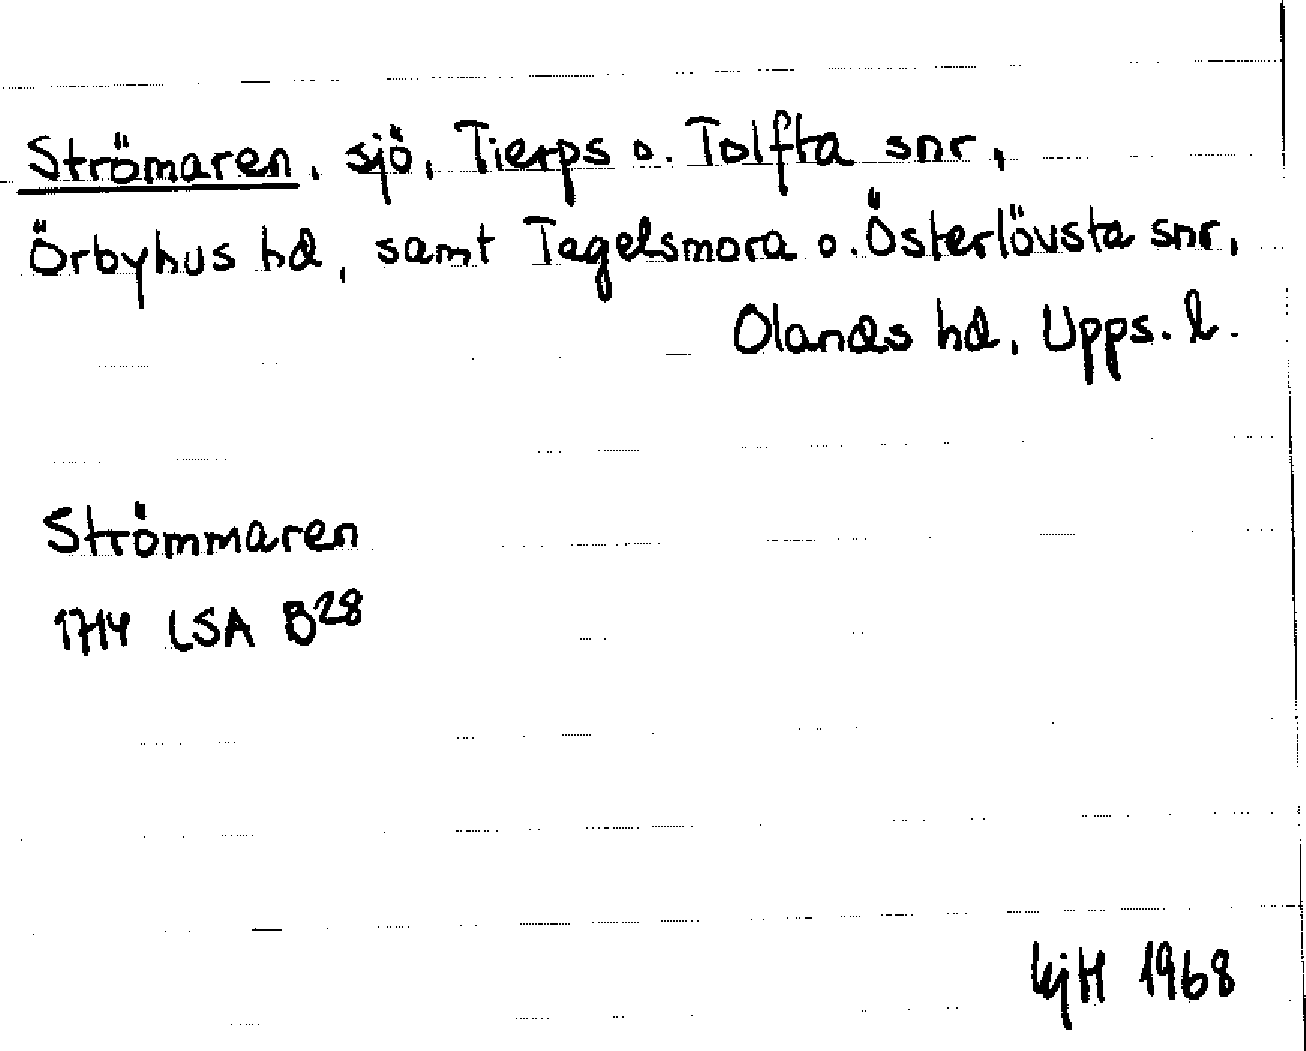 Strömaren, sjö, Tierps o. Tolfta snr,
Örbyhus hd, samt Tegelsmora o. Österlövsta snr,
Olands hd, Upps. l.
Strömmaren
1714 LSA B28
1968